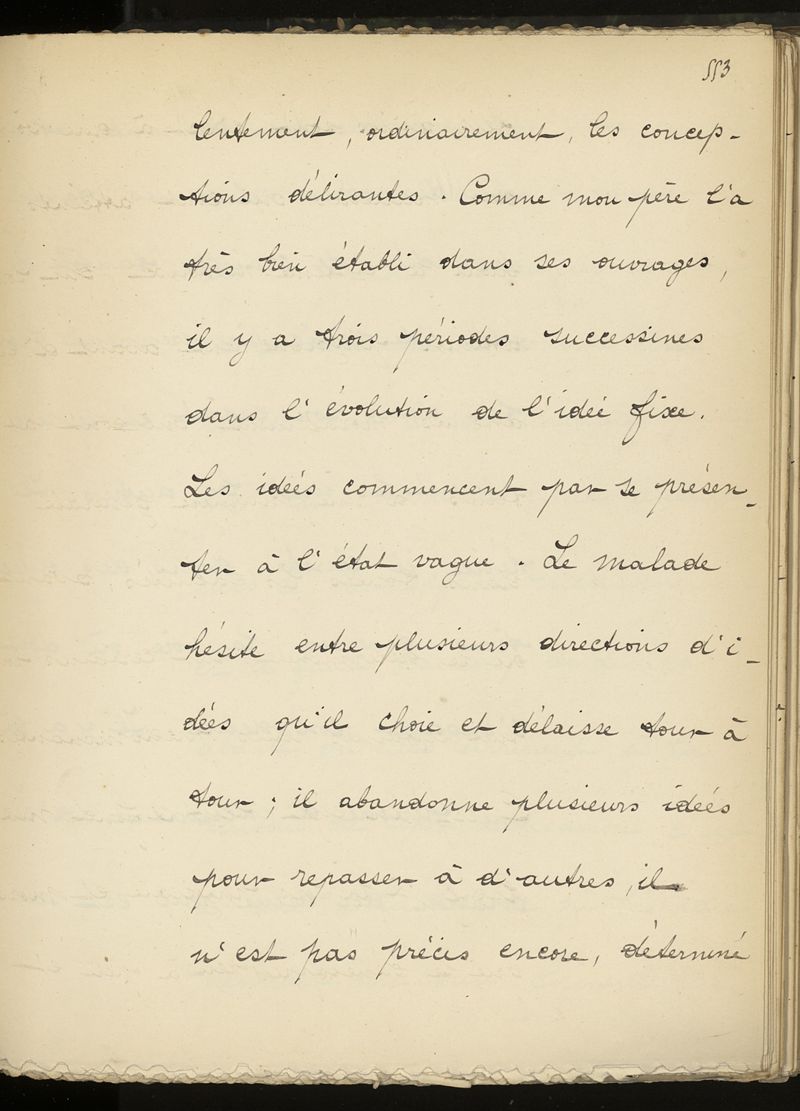 553
lentement, ordinairement, les concep-
tions délirantes. Comme mon père l'a
très bien établi dans ses ouvrages,
il y a trois périodes successives
dans l'évolution de l'idée fixe.
Les idées commencent par se présen-
ter à l'état vague. Le malade
hésite entre plusieurs directions d'i-
dées qu'il choie et délaisse tour à
tour; il abandonne plusieurs idées
pour repasser à d'autres, il
n'est pas précis encore, déterminé